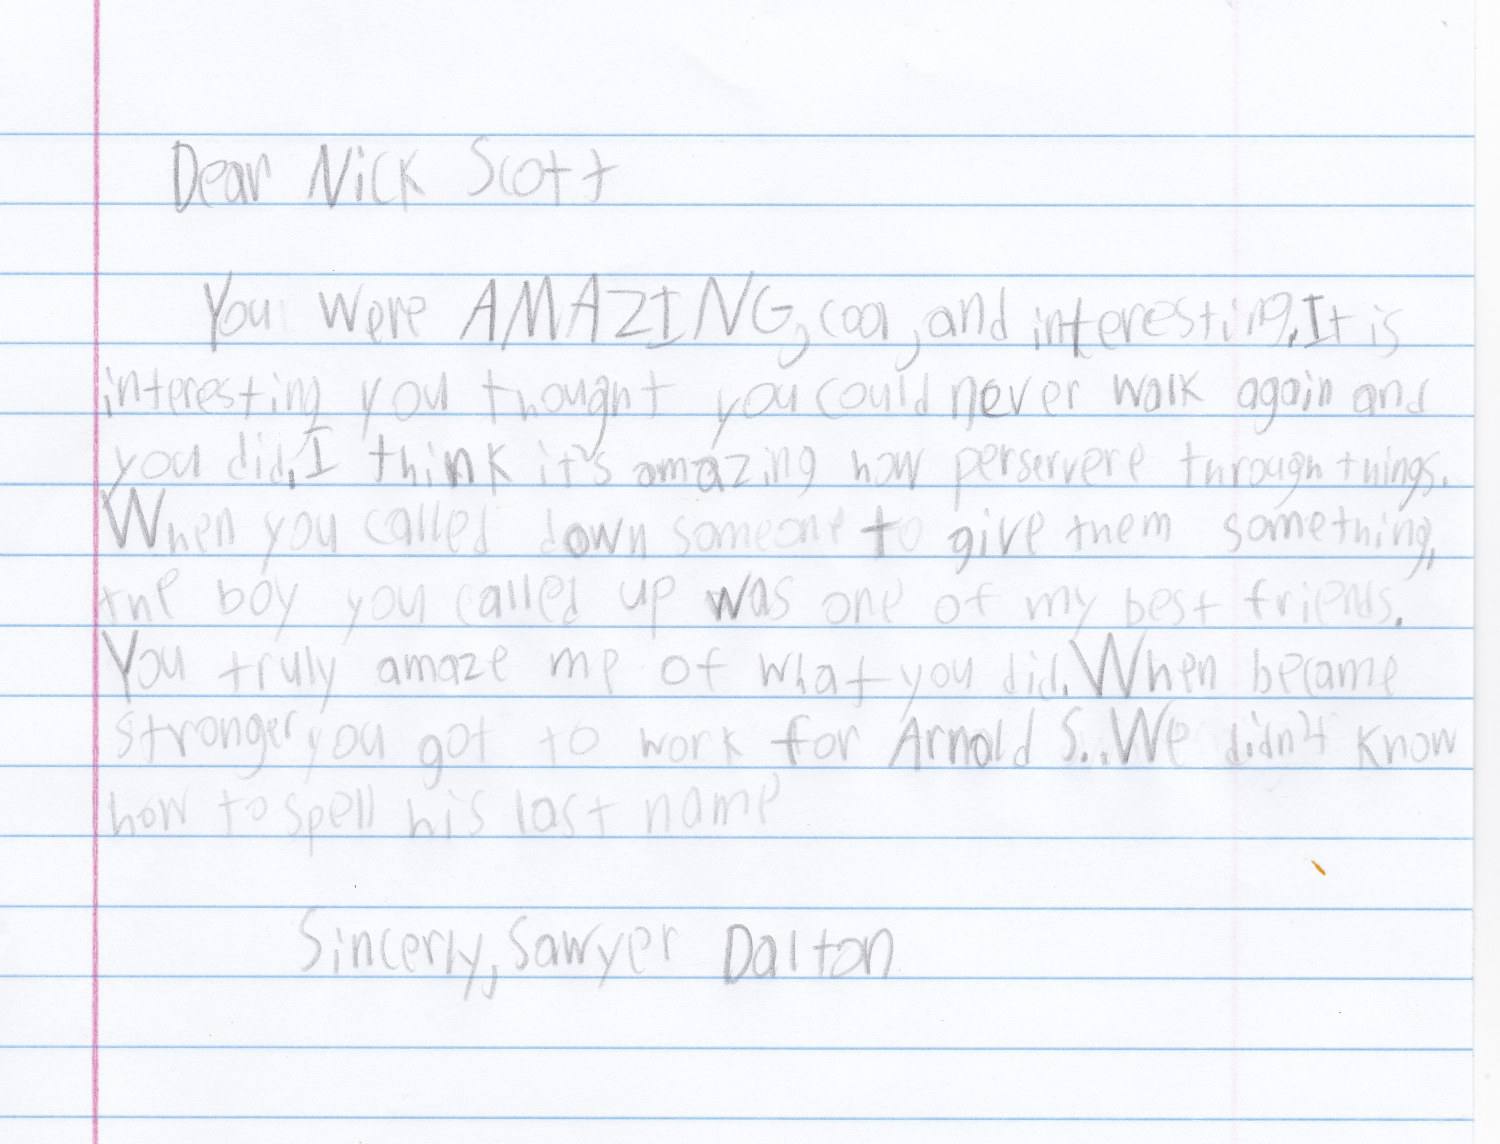 Dear Nick Scott
You were AMAZING, cool, and interesting. It is
interesting you thought you could never walk again and
you did. I think it's amazing how perservere through things.
When you called down someone to give them something,
the boy you called up was one of my best friends.
You truly amaze me of what you did. When became
stronger you got to work for Arnold S.. We didn't know
how to spell his last name
Sincerly, Sawyer Dalton